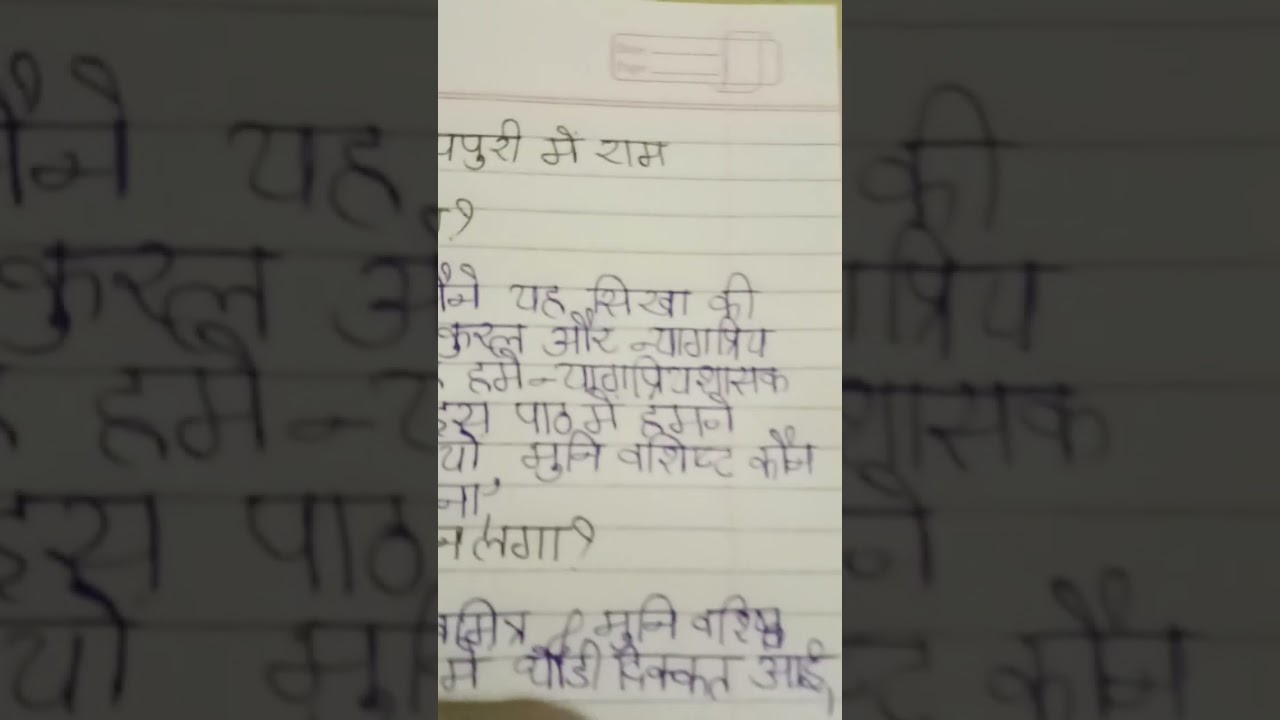 यपुरी में राम
?
मैने यह सिखा की
कुशल और न्यायप्रिय
हमे न्यायप्रिय शासक
इस पाठ मे हमने
यो मुनि वशिष्ट कौन
ना
न लगा?
मित्र मुनि वशिष्ठ
मे थोडी दिक्कत आई